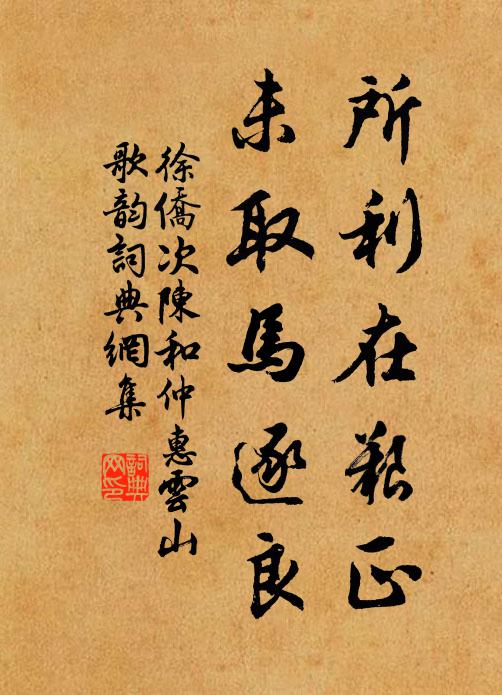 所利在艱正
未取馬逐良
徐僑次陳和仲惠雲山
歌韵詞典網集
詞典
网印